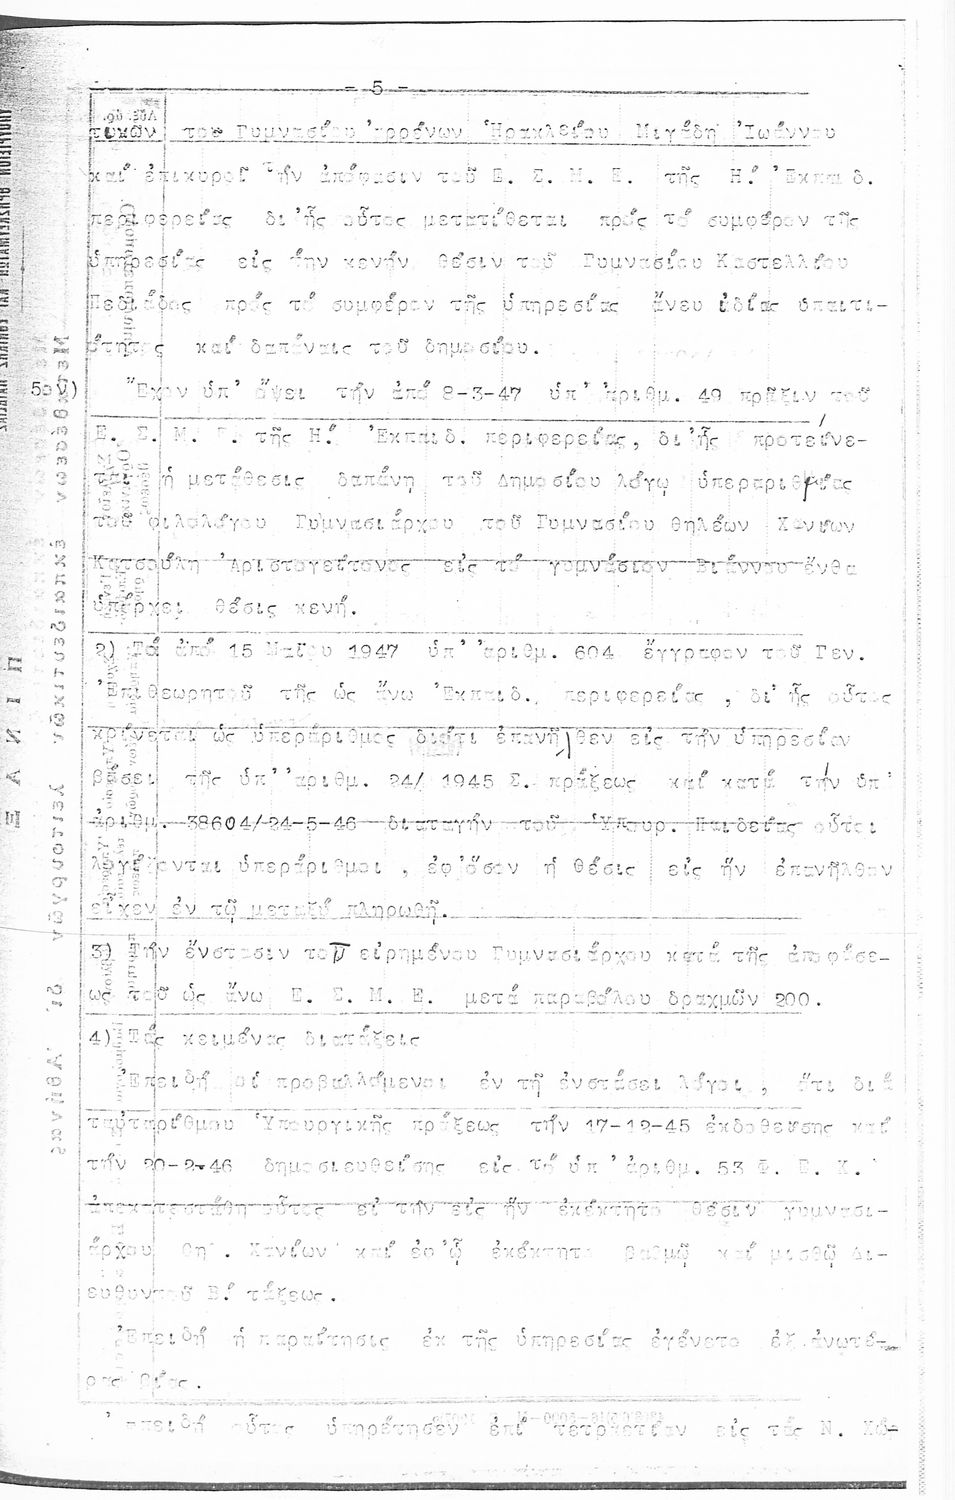 - 5 -
τικῶν τοῦ Γυμνασίου Ἀρρένων Ἡρακλείου Μιγάδη Ἰωάννου
καί ἐπικυροῖ τήν ἀπόφασιν τοῦ Ε. Σ. Μ. Ε. τῆς Η΄ Ἐκπαιδ.
περιφερείας δι'ἧς οὗτος μετατίθεται πρός τό συμφέρον τῆς
ὑπηρεσίας εἰς τήν κενήν θέσιν τοῦ Γυμνασίου Καστελλίου
Πεδιάδος πρός τό συμφέρον τῆς ὑπηρεσίας ἄνευ ἰδίας ὑπαιτι-
ότητος καί δαπάναις τοῦ δημοσίου.
5ον) Ἔχον ὑπ' ὄψει τήν ἀπό 8-3-47 ὑπ' ἀριθμ. 49 πρᾶξιν τοῦ
Ε. Σ. Μ. Ε. τῆς Η΄ Ἐκπαιδ. περιφερείας, δι'ἧς προτείνε-
ται ἡ μετάθεσις δαπάνῃ τοῦ Δημοσίου λόγῳ ὑπεραριθμίας
τοῦ φιλολόγου Γυμνασιάρχου τοῦ Γυμνασίου θηλέων Χανίων
Κατσούλη Ἀριστογείτονος εἰς τό γυμνάσιον Βιάννου ἔνθα
ὑπάρχει θέσις κενή.
2) Τό ἀπό 15 Μαΐου 1947 ὑπ' ἀριθμ. 604 ἔγγραφον τοῦ Γεν.
Ἐπιθεωρητοῦ τῆς ὡς ἄνω Ἐκπαιδ. περιφερείας , δι' ἧς οὗτος
κρίνεται ὡς ὑπεράριθμος διότι ἐπανῆλθεν εἰς τήν ὑπηρεσίαν
βάσει τῆς ὑπ' ἀριθμ. 24/ 1945 Σ. πράξεως καί κατά τήν ὑπ'
ἀριθμ. 38604/24-5-46 διαταγήν τοῦ Ὑπουρ. Παιδείας οὗτοι
λογίζονται ὑπεράριθμοι , ἐφ'ὅσον ἡ θέσις εἰς ἥν ἐπανῆλθον
εἶχεν ἐν τῷ μεταξύ πληρωθῆ.
3) Τήν ἔνστασιν τοῦ εἰρημένου Γυμνασιάρχου κατά τῆς ἀποφάσε-
ως τοῦ ὡς ἄνω Ε. Σ. Μ. Ε. μετά παραβόλου δραχμῶν 200.
4) Τάς κειμένας διατάξεις
Ἐπειδή οἱ προβαλλόμενοι ἐν τῇ ἐνστάσει λόγοι , ὅτι διά
ταὐταρίθμου Ὑπουργικῆς πράξεως τήν 17-12-45 ἐκδοθείσης καί
τήν 20-2-46 δημοσιευθείσης εἰς τό ὑπ' ἀριθμ. 53 Φ. Ε. Κ.
ἀποκατεστάθη οὗτος εἰ τήν εἰς ἥν ἐκέκτητο θέσιν γυμνασι-
άρχου θη . Χανίων καί ἐφ'ᾧ ἐκέκτητο βαθμῷ καί μισθῷ Δι-
ευθυντοῦ Β΄ τάξεως.
Ἐπειδή ἡ παραίτησις ἐκ τῆς ὑπηρεσίας ἐγένετο ἐξ ἀνωτέ-
ρας βίας.
Ἐπειδή οὗτος ὑπηρέτησεν ἐπί τετραετίαν εἰς τάς Ν. Χώ-